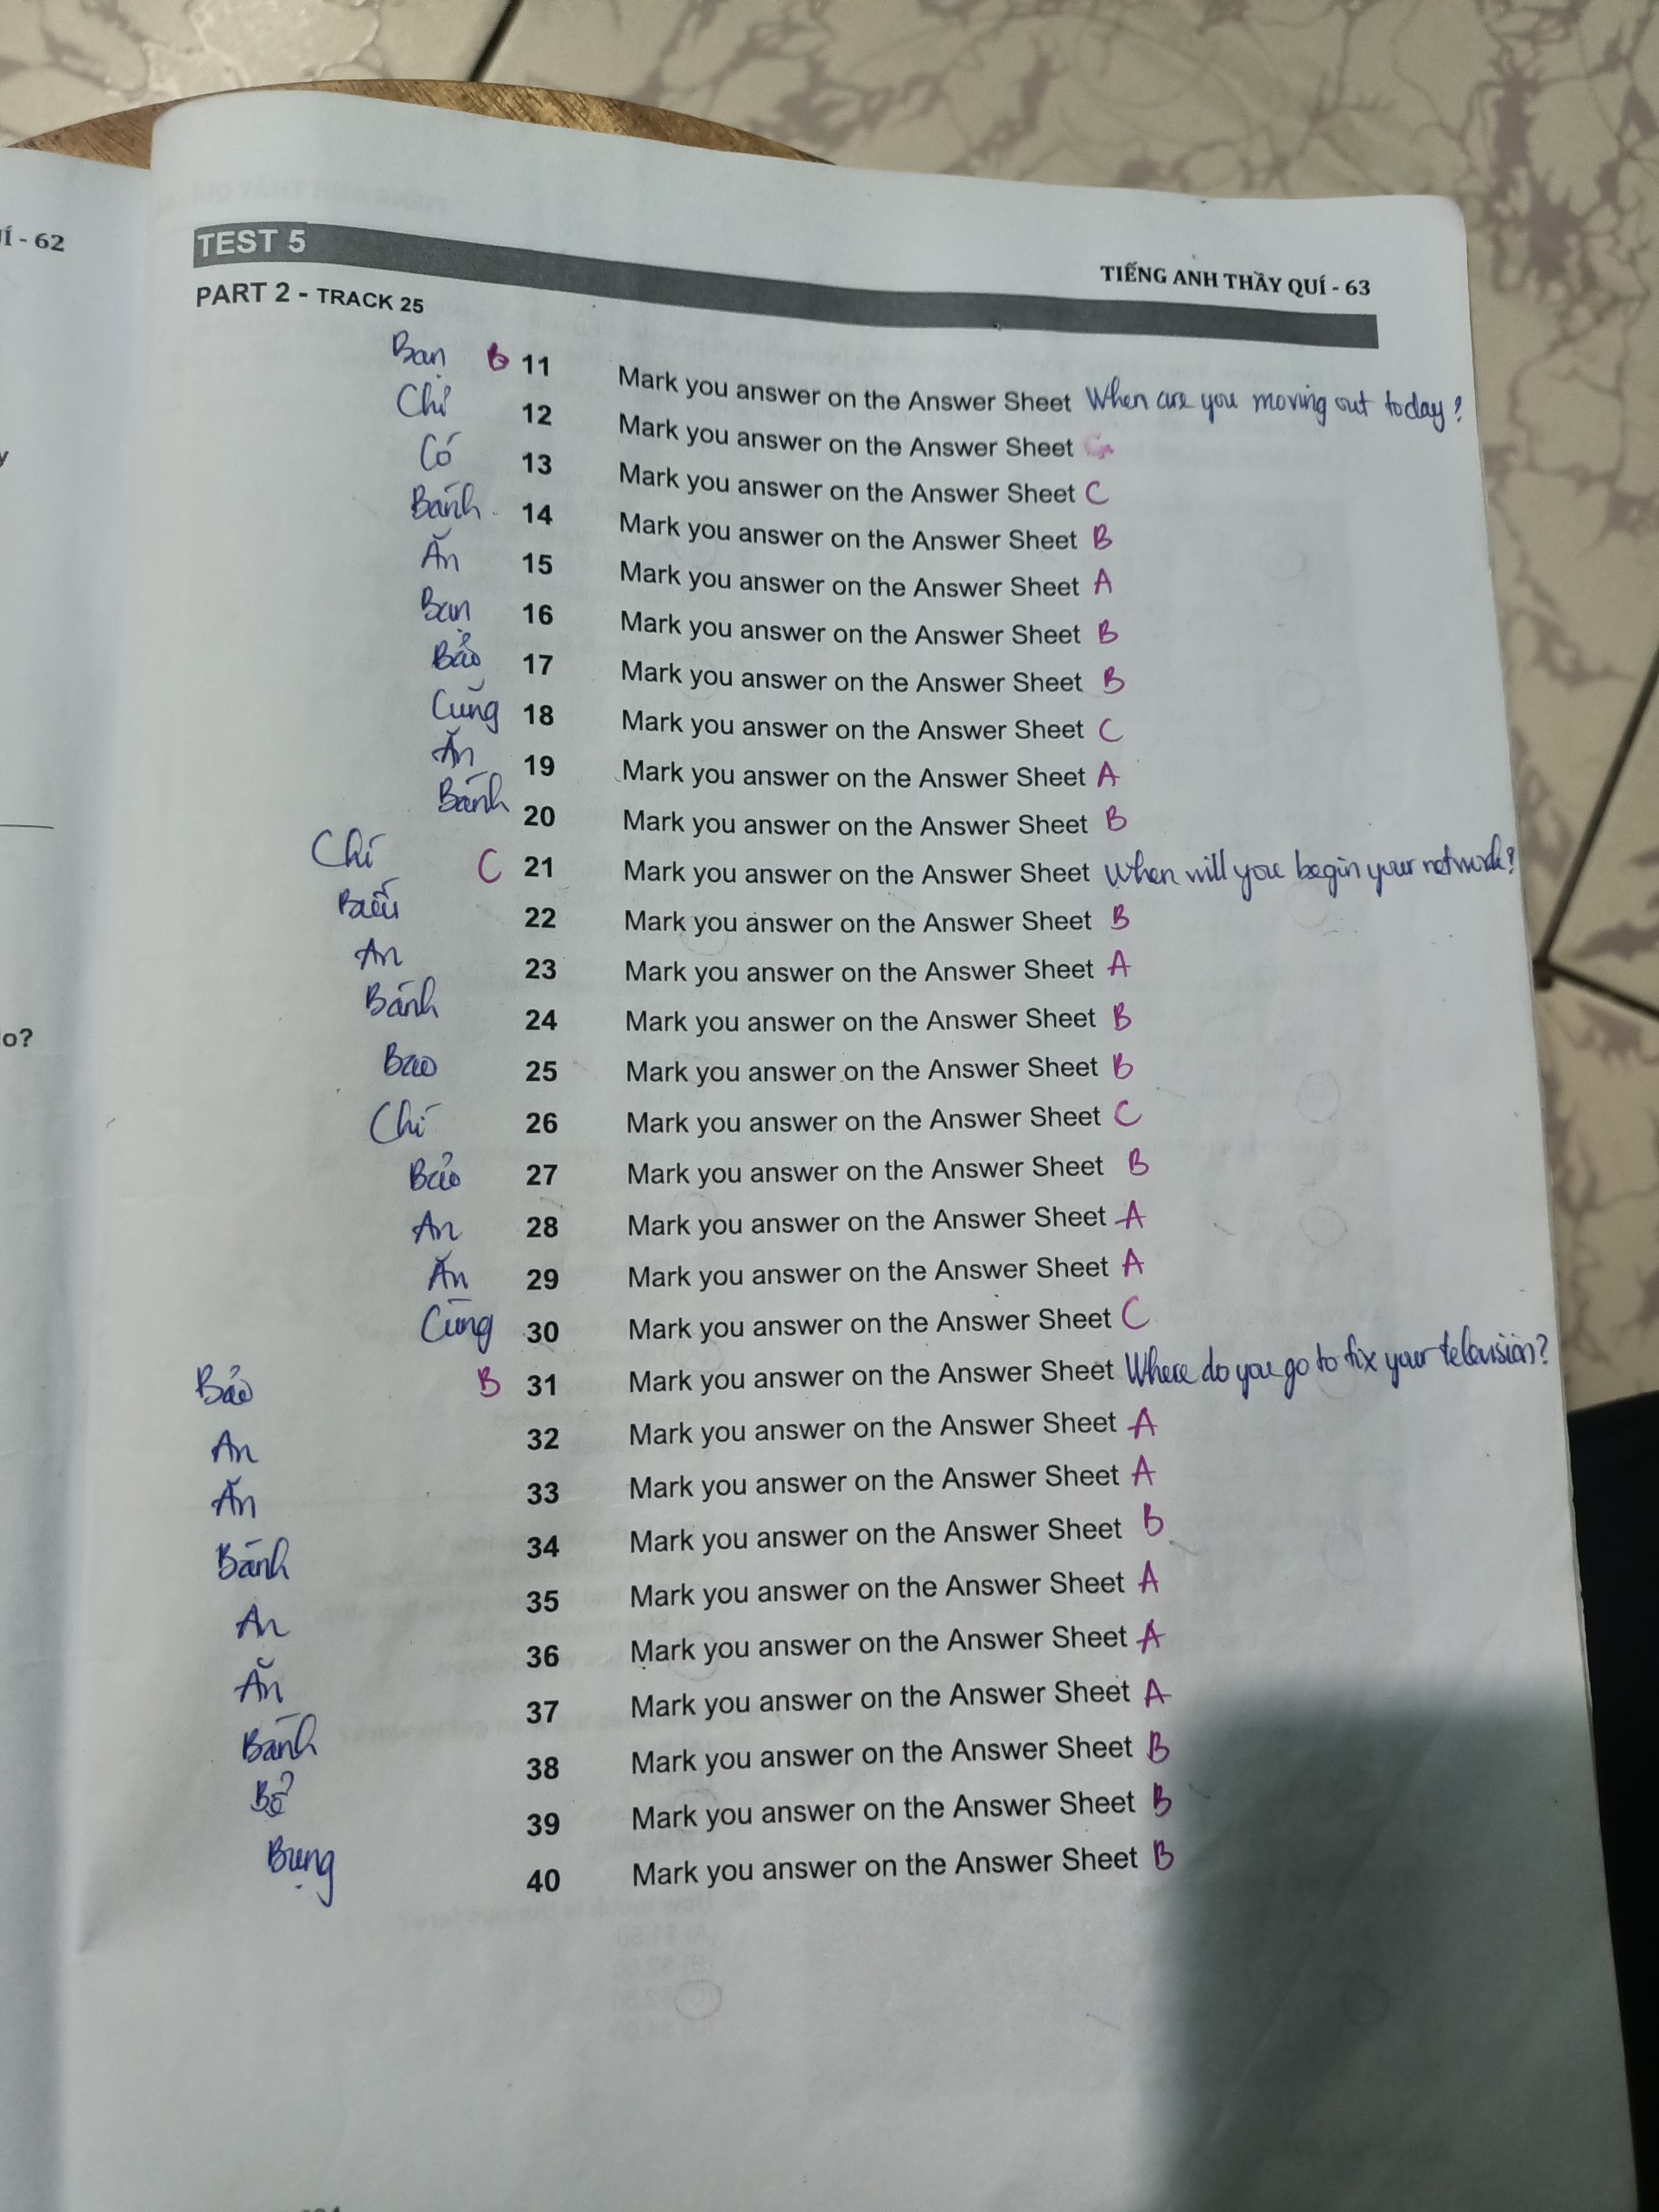 Í - 62
TEST 5
TIẾNG ANH THẦY QUÍ - 63
PART 2 - TRACK 25
Bạn B 11 Mark you answer on the Answer Sheet When are you moving out today?
Chỉ 12 Mark you answer on the Answer Sheet
Có 13 Mark you answer on the Answer Sheet C
Bánh 14 Mark you answer on the Answer Sheet B
Ăn 15 Mark you answer on the Answer Sheet A
Bạn 16 Mark you answer on the Answer Sheet B
Bảo 17 Mark you answer on the Answer Sheet B
Cũng 18 Mark you answer on the Answer Sheet C
Ăn 19 Mark you answer on the Answer Sheet A
Bánh 20 Mark you answer on the Answer Sheet B
Chí C 21 Mark you answer on the Answer Sheet When will you begin your network?
22 Mark you answer on the Answer Sheet B
An 23 Mark you answer on the Answer Sheet A
Bánh 24 Mark you answer on the Answer Sheet B
Bao 25 Mark you answer on the Answer Sheet B
Chí 26 Mark you answer on the Answer Sheet C
Bảo 27 Mark you answer on the Answer Sheet B
An 28 Mark you answer on the Answer Sheet A
Ăn 29 Mark you answer on the Answer Sheet A
Cùng 30 Mark you answer on the Answer Sheet C
Bảo B 31 Mark you answer on the Answer Sheet Where do you go to fix your television?
An 32 Mark you answer on the Answer Sheet A
Ăn 33 Mark you answer on the Answer Sheet A
Bánh 34 Mark you answer on the Answer Sheet B
An 35 Mark you answer on the Answer Sheet A
Ăn 36 Mark you answer on the Answer Sheet A
Bánh 37 Mark you answer on the Answer Sheet A
Bể 38 Mark you answer on the Answer Sheet B
Bụng 39 Mark you answer on the Answer Sheet B
40 Mark you answer on the Answer Sheet B
o?